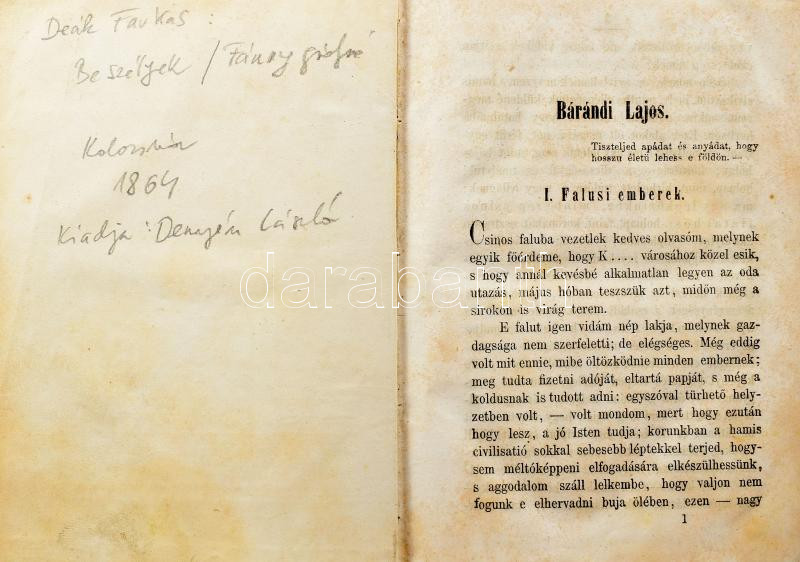 Deák Farkas :
Beszélyek / Fánny grófné
Kolozsvár
1864
Kiadja : Demjén László
Bárándi Lajos.
Tiszteljed apádat és anyádat, hogy
hosszu életü lehess e földön. —
I. Falusi emberek.
Csinos faluba vezetlek kedves olvasóm, melynek
egyik főérdeme, hogy K.... városához közel esik,
s hogy annál kevésbé alkalmatlan legyen az oda
utazás, május hóban teszszük azt, midőn még a
sirokon is virág terem.
E falut igen vidám nép lakja, melynek gaz-
dagsága nem szerfeletti; de elégséges. Még eddig
volt mit ennie, mibe öltözködnie minden embernek;
meg tudta fizetni adóját, eltartá papját, s még a
koldusnak is tudott adni: egyszóval türhető hely-
zetben volt, — volt mondom, mert hogy ezután
hogy lesz, a jó Isten tudja; korunkban a hamis
civilisatió sokkal sebesebb léptekkel terjed, hogy-
sem méltóképpeni elfogadására elkészülhessünk,
s aggodalom száll lelkembe, hogy valjon nem
fogunk e elhervadni buja ölében, ezen — nagy
1
darabanth